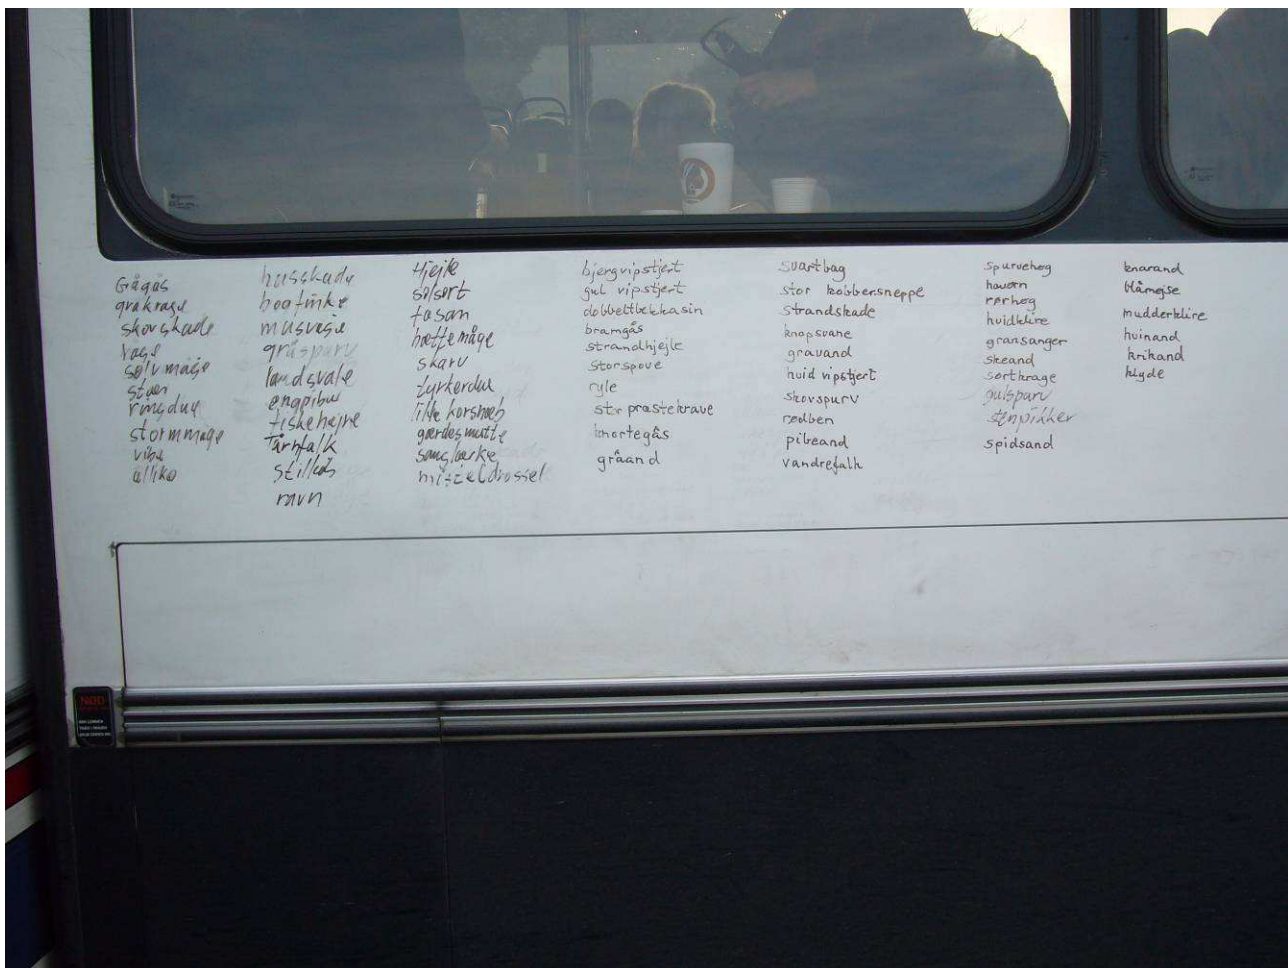 Gågås
gråkrage
skovskade
våge
sølvmåge
stær
ringdue
stormmåge
vibe
allike
husskade
bogfinke
musvåge
gråspurv
landsvale
engpiber
fiskehejre
Tårnfalk
stillids
ravn
Hjejle
solsort
fasan
hættemåge
skarv
tyrkerdue
lille korsnæb
gærdesmutte
sanglærke
misteldrossel
bjergvipstjert
gul vipstjert
dobbeltbekkasin
bramgås
strandhjejle
storspove
ryle
stor præstekrave
knortegås
gråand
svartbag
stor kobbersneppe
strandskade
knopsvane
gravand
hvid vipstjert
skovspurv
rødben
pibeand
vandrefalk
spurvehøg
havørn
rørhøg
hvidklire
gransanger
skeand
sortkrage
gulspurv
stenpikker
spidsand
knarand
blåmejse
mudderklire
hvinand
krikand
klyde
NØD